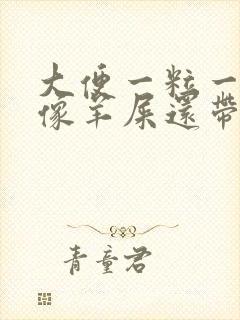 大便一粒一
像羊屎還帶
青童君